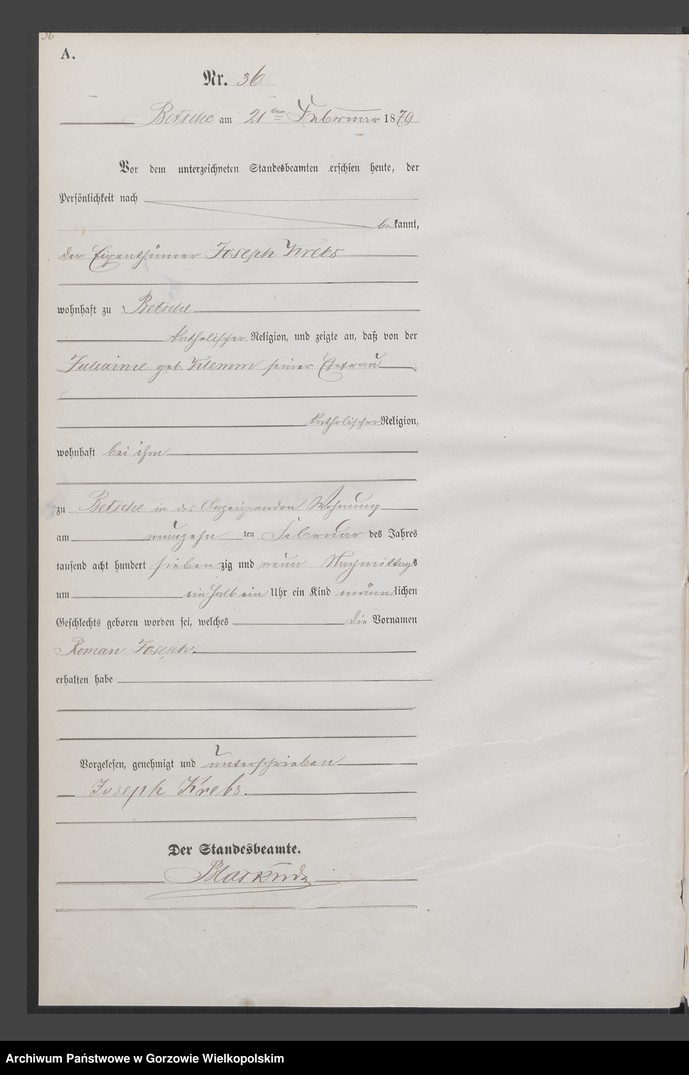 36
A.
Nr. 36
Betsche am 21ten Februar 1879
Vor dem unterzeichneten Standesbeamten erschien heute, der
Persönlichkeit nach
bekannt,
der Eigenthümer Joseph Krebs
wohnhaft zu Betsche
katholischer Religion, und zeigte an, daß von der
Julianne geb. Klemm seiner Ehefrau
katholischer Religion,
wohnhaft bei ihm
zu Betsche in der Wohnung
am neunzehn ten Februar des Jahres
tausend acht hundert siebenzig und neun Nachmittags
um einhalb ein Uhr ein Kind männlichen
Geschlechts geboren worden sei, welches die Vornamen
Roman Joseph
erhalten habe
Vorgelesen, genehmigt und unterschrieben
Joseph Krebs.
Der Standesbeamte.
Archiwum Państwowe w Gorzowie Wielkopolskim